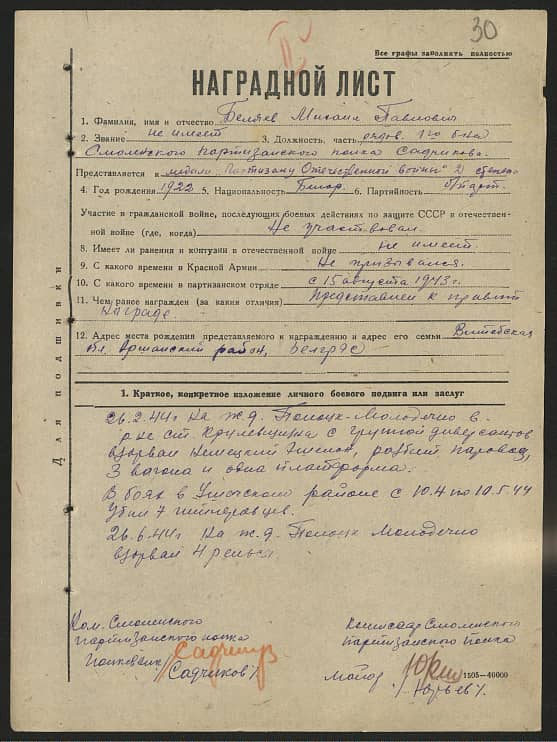 30
II
Все графы заполнять полностью
НАГРАДНОЙ ЛИСТ
1. Фамилия, имя и отчество Беляев Михаил Павлович
2. Звание не имеет 3. Должность, часть рядов. 1го б-на
Смоленского партизанского полка Садчикова.
Представляется к медали "Партизану Отечественной войны" 2 степени
4. Год рождения 1922 5. Национальность Белор. 6. Партийность б/парт.
Участие в гражданской войне, последующих боевых действиях по защите СССР в отечествен-
ной войне (где, когда) Не участвовал
8. Имеет ли ранения и контузии в отечественной войне не имеет.
9. С какого времени в Красной Армии Не призывался.
10. С какого времени в партизанском отряде с 15 августа 1943 г.
11. Чем ранее награжден (за какие отличия) Представлен к правит.
награде
12. Адрес места рождения представляемого к награждению и адрес его семьи Витебская
обл. Оршанский район,
Для подшивки
1. Краткое, конкретное изложение личного боевого подвига или заслуг
26.2.44г на ж.д. Полоцк-Молодечно в
р-не ст. Крулевщизна с группой диверсантов
взорвал немецкий эшелон, разбит паровоз,
3 вагона и одна платформа.
В боях в Ушачском районе с 10.4 по 10.5.44
убил 7 гитлеровцев.
26.6.44г на ж.д. Полоцк Молодечно
взорвал 4 рельса.
Ком. Смоленского
партизанского полка
Полковник
/Садчиков/
Комиссар Смоленского
партизанского полка
майор
/Юрьев/
1505-40000